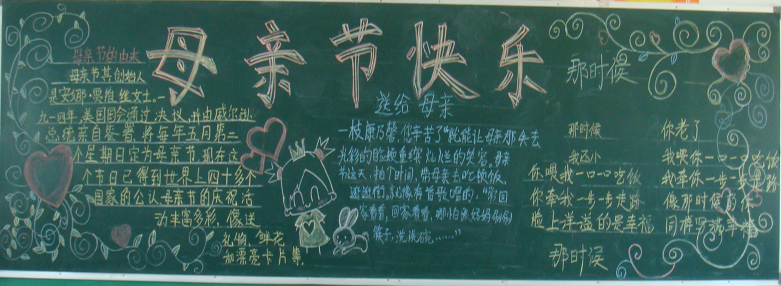 母亲节快乐
母亲节的由来
母亲节其创始人
是安娜·贾维丝女士.一
九一四年,美国国会通过决议,并由威尔逊
总统亲自签署,将每年五月第二
个星期日定为母亲节,现在这
个节日已得到世界上四十多个
国家的公认母亲节的庆祝活
动丰富多彩,像送
礼物、鲜花
和漂亮卡片等.
送给母亲
一枝康乃馨,你辛苦了"就能让母亲那失去
光彩的脸换重绽灿烂的笑容,母亲
节这天,抽个时间,带母亲去吃顿饭,
逛逛街,就像有首歌唱的,"常回
家看看,回家看看,哪怕帮妈妈刷刷
筷子,洗洗碗……"
那时候
那时候
我还小
你喂我一口一口吃饭
你牵我一步一步走路
脸上洋溢的是幸福
那时候
你老了
我喂你一口一口吃饭
我牵你一步一步走
像那时候的你
同样写满幸福